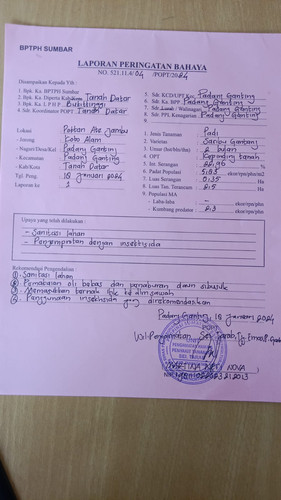 BPTPH SUMBAR
LAPORAN PERINGATAN BAHAYA
NO. 521.11.4/04 /POPT/2024
Disampaikan Kepada Yth :
1. Bpk. Ka. BPTPH Sumbar
2. Bpk. Ka. Diperta Tanah Datar
3. Bpk. Ka. L P H P. Bukittinggi
4. Sdr. Koordinator POPT Tanah Datar
5. Sdr. KCD/UPT Padang Ganting
6. Sdr. Ka. BPP. Padang Ganting
7. Sdr. Walinagari Padang Ganting
8. Sdr. PPL Kenagarian Padang Ganting
Lokasi : Poktan Aie Jambu
- Jorong : Koto Alam
- Nagari/Desa/Kel : Padang Ganting
- Kecamatan : Padang Ganting
- Kab/Kota : Tanah Datar
Tgl. Peng. : 18 Januari 2024
Laporan ke : 1
1. Jenis Tanaman : Padi
2. Varietas : Ganting
3. Umur (hst/bln/thn) : 2 bulan
4. OPT : Kepinding tanah
5. Int. Serangan :
6. Padat Populasi : 5.03 ekor/rpn/phn/m2
7. Luas Serangan : 0.35 Ha
8. Luas Tan. Terancam : 2.5 Ha
9. Populasi MA
- Laba-laba : – ekor/rpn/phn
- Kumbang predator : 2.3 ekor/rpn/phn
Upaya yang telah dilakukan :
- Sanitasi lahan
- Penyemprotan dengan insektisida
Rekomendasi Pengendalian :
1. Sanitasi lahan
2. Pemakaian oli bekas dan penaburan daun sibusuk
3. Memasukkan ternak itik ke dlm sawah
4. Penggunaan insektisida yang direkomendasikan
Padang Ganting, 18 Januari 2024
POPT
Wil. Pengamatan
MARTINA NOVA
NIP.